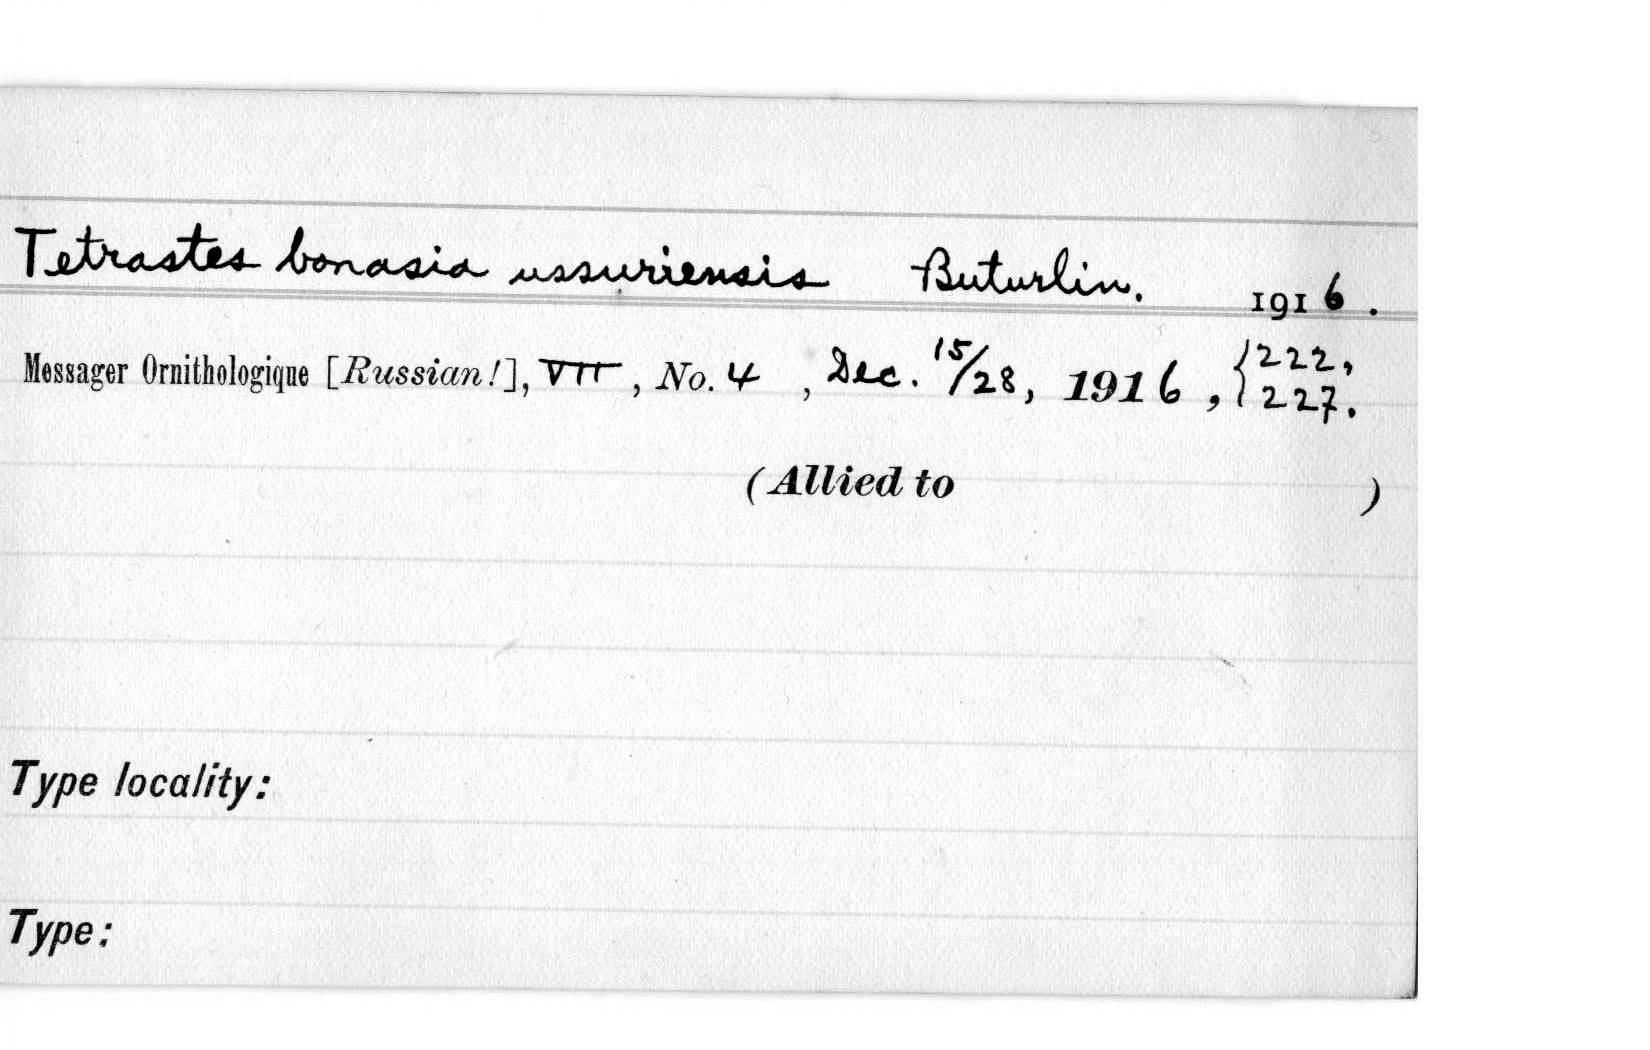 Tetrastes bonasia ussuriensis Buturlin. 1916.
Messager Ornithologique [Russian!], VII, No. 4, Dec. 15/28, 1916, {222,
227.
(Allied to )
Type locality:
Type: